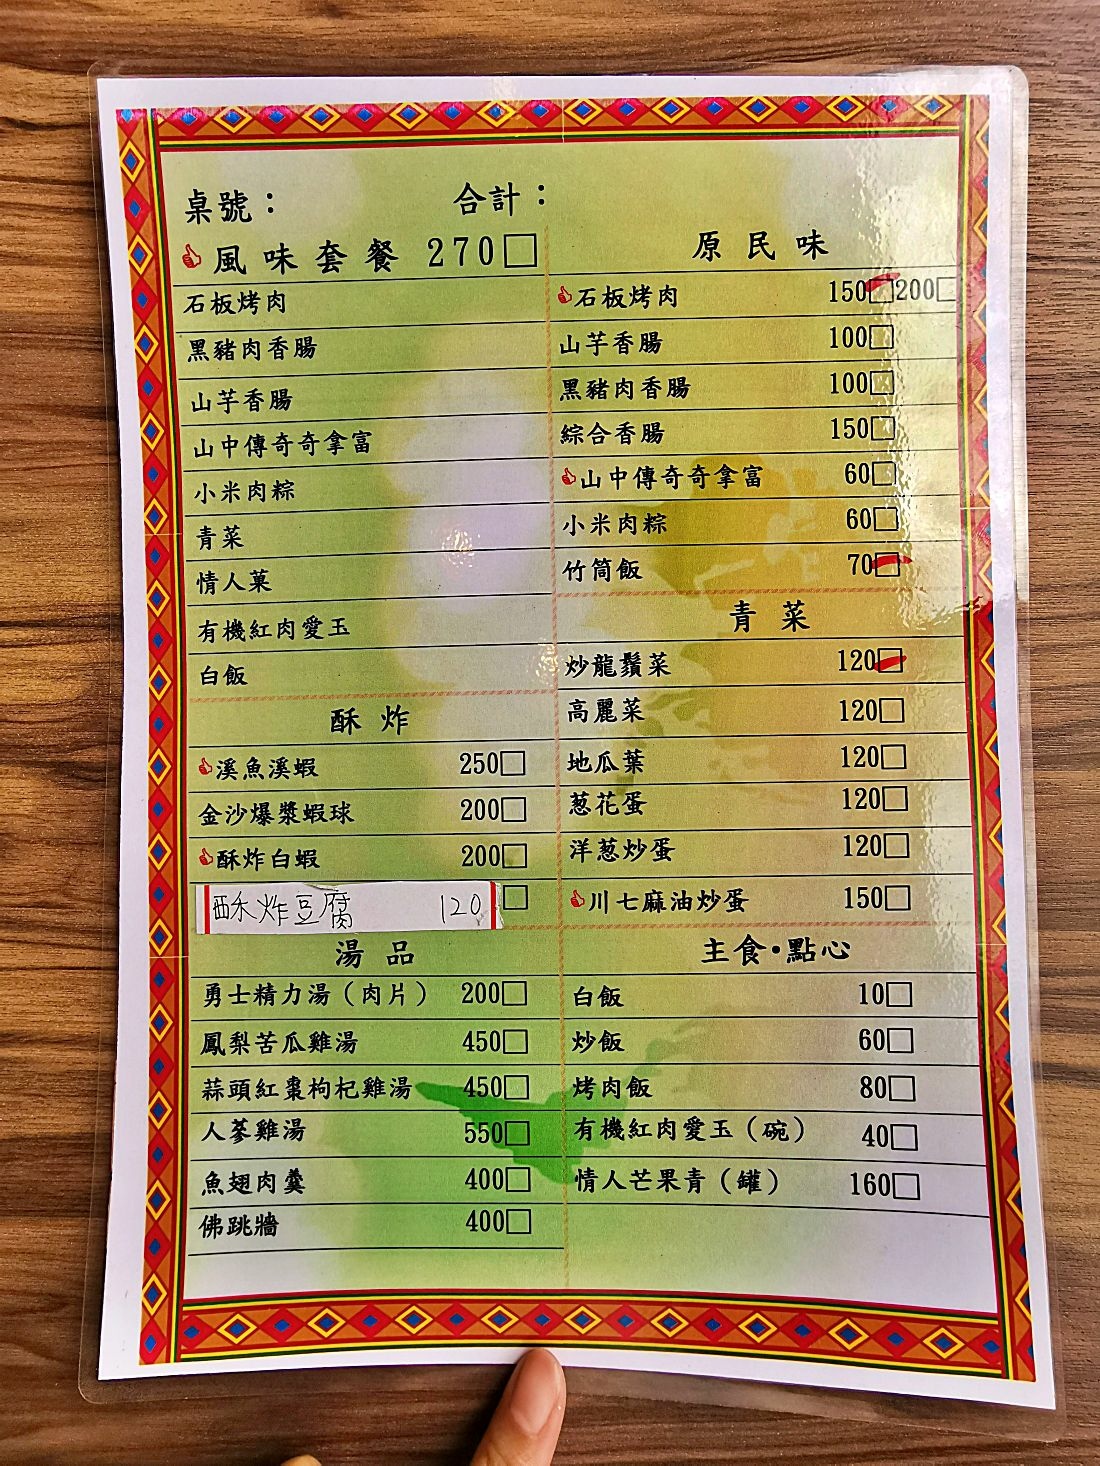 桌號： 合計：
風味套餐 270□
石板烤肉
黑豬肉香腸
山芋香腸
山中傳奇奇拿富
小米肉粽
青菜
情人菓
有機紅肉愛玉
白飯
酥炸
溪魚溪蝦 250□
金沙爆漿蝦球 200□
酥炸白蝦 200□
酥炸豆腐 120 □
湯品
勇士精力湯（肉片） 200□
鳳梨苦瓜雞湯 450□
蒜頭紅棗枸杞雞湯 450□
人蔘雞湯 550□
魚翅肉羹 400□
佛跳牆 400□
原民味
石板烤肉 150□200□
山芋香腸 100□
黑豬肉香腸 100□
綜合香腸 150□
山中傳奇奇拿富 60□
小米肉粽 60□
竹筒飯 70□
青菜
炒龍鬚菜 120□
高麗菜 120□
地瓜葉 120□
葱花蛋 120□
洋葱炒蛋 120□
川七麻油炒蛋 150□
主食·點心
白飯 10□
炒飯 60□
烤肉飯 80□
有機紅肉愛玉（碗） 40□
情人芒果青（罐） 160□